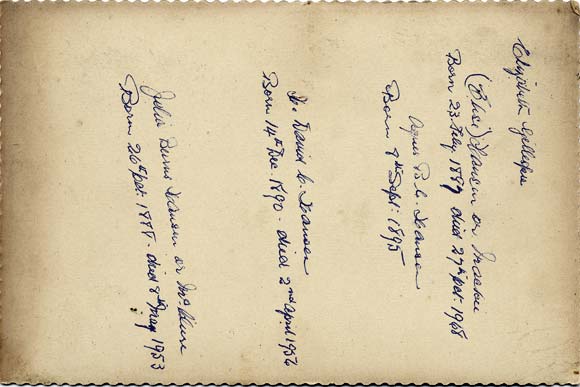 Elizabeth Gillespie
(Elsie) Hanson or
Born 23 1889 died 27th Oct. 1968
Agnes B. C. Hanson
Born 9th Sept. 1895
David C. Hanson
Born 14th Dec. 1890. died 2nd April 1956
Julia Burns Hanson or McClure
Born 26th Oct. 1888. died 8th May 1953